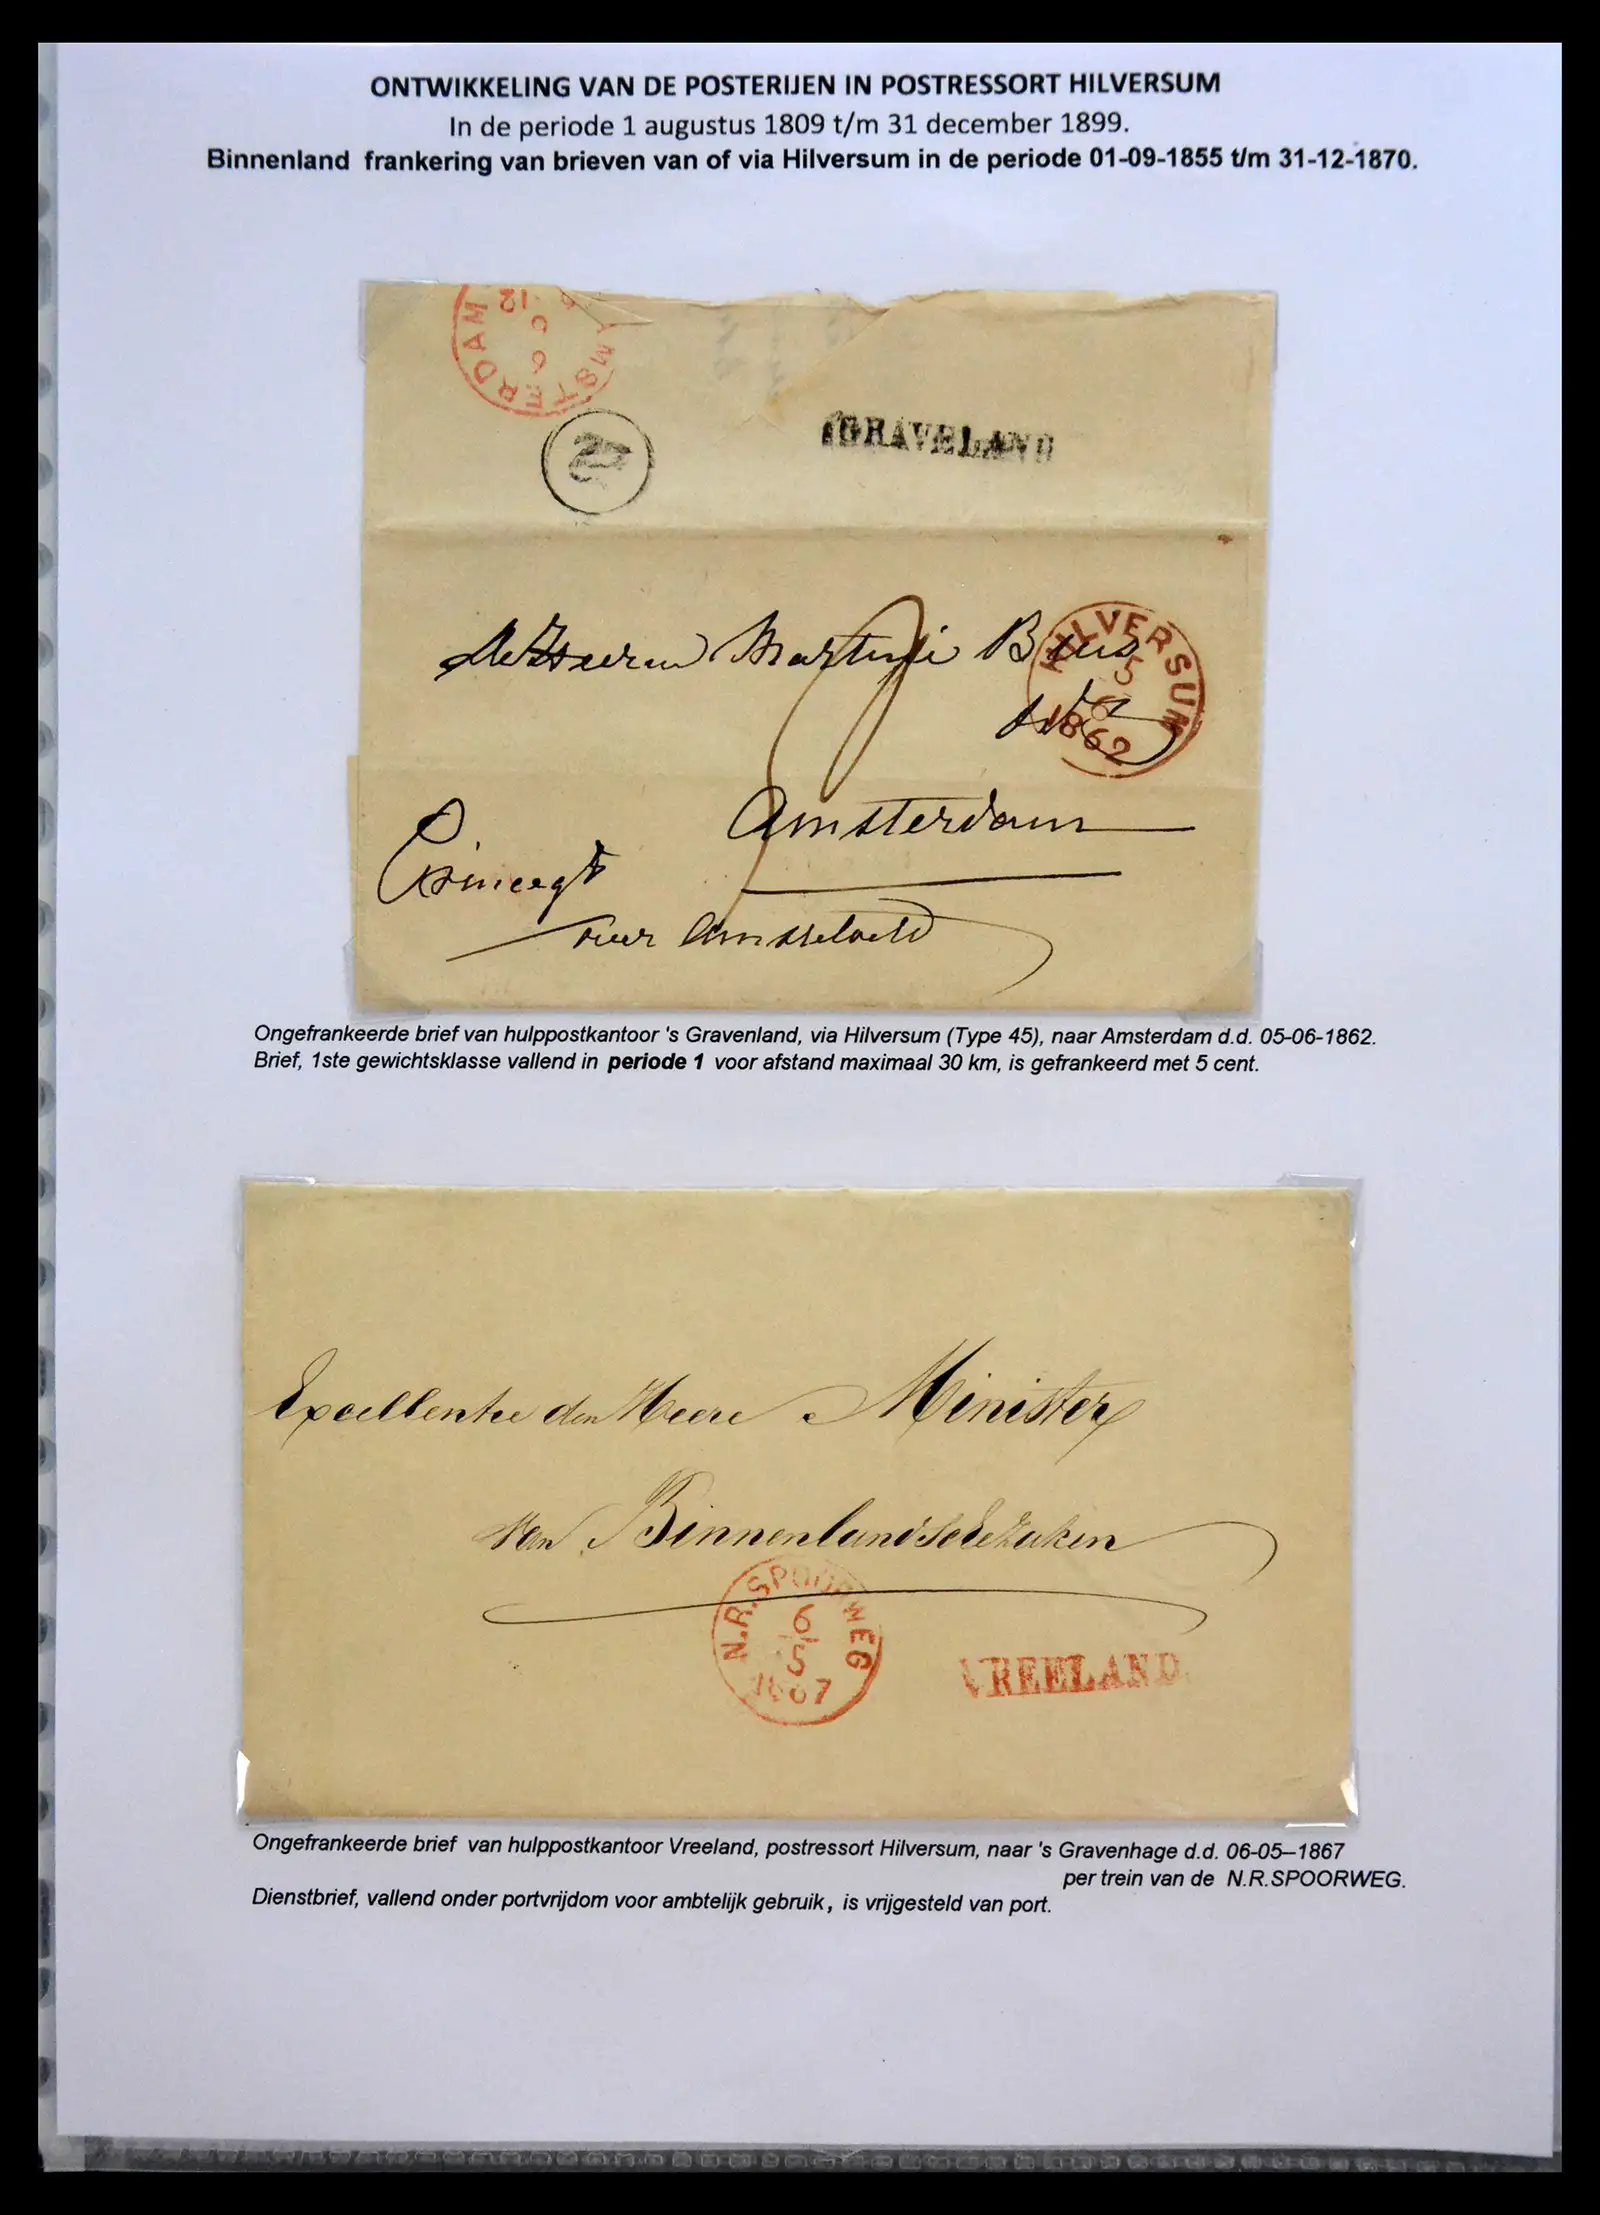 ONTWIKKELING VAN DE POSTERIJEN IN POSTRESSORT HILVERSUM
In de periode 1 augustus 1809 t/m 31 december 1899.
Binnenland frankering van brieven van of via Hilversum in de periode 01-09-1855 t/m 31-12-1870.
AMSTERDAM
GRAVELAND
HILVERSUM
5
6
1862
Amsterdam
over
Ongefrankeerde brief van hulppostkantoor 's Gravenland, via Hilversum (Type 45), naar Amsterdam d.d. 05-06-1862.
Brief, 1ste gewichtsklasse vallend in periode 1 voor afstand maximaal 30 km, is gefrankeerd met 5 cent.
Excellentie den Heere Minister
van Binnenlandsche Zaken
N.R.SPOORWEG
6
5
1867
VREELAND
Ongefrankeerde brief van hulppostkantoor Vreeland, postressort Hilversum, naar 's Gravenhage d.d. 06-05–1867
per trein van de N.R.SPOORWEG.
Dienstbrief, vallend onder portvrijdom voor ambtelijk gebruik, is vrijgesteld van port.